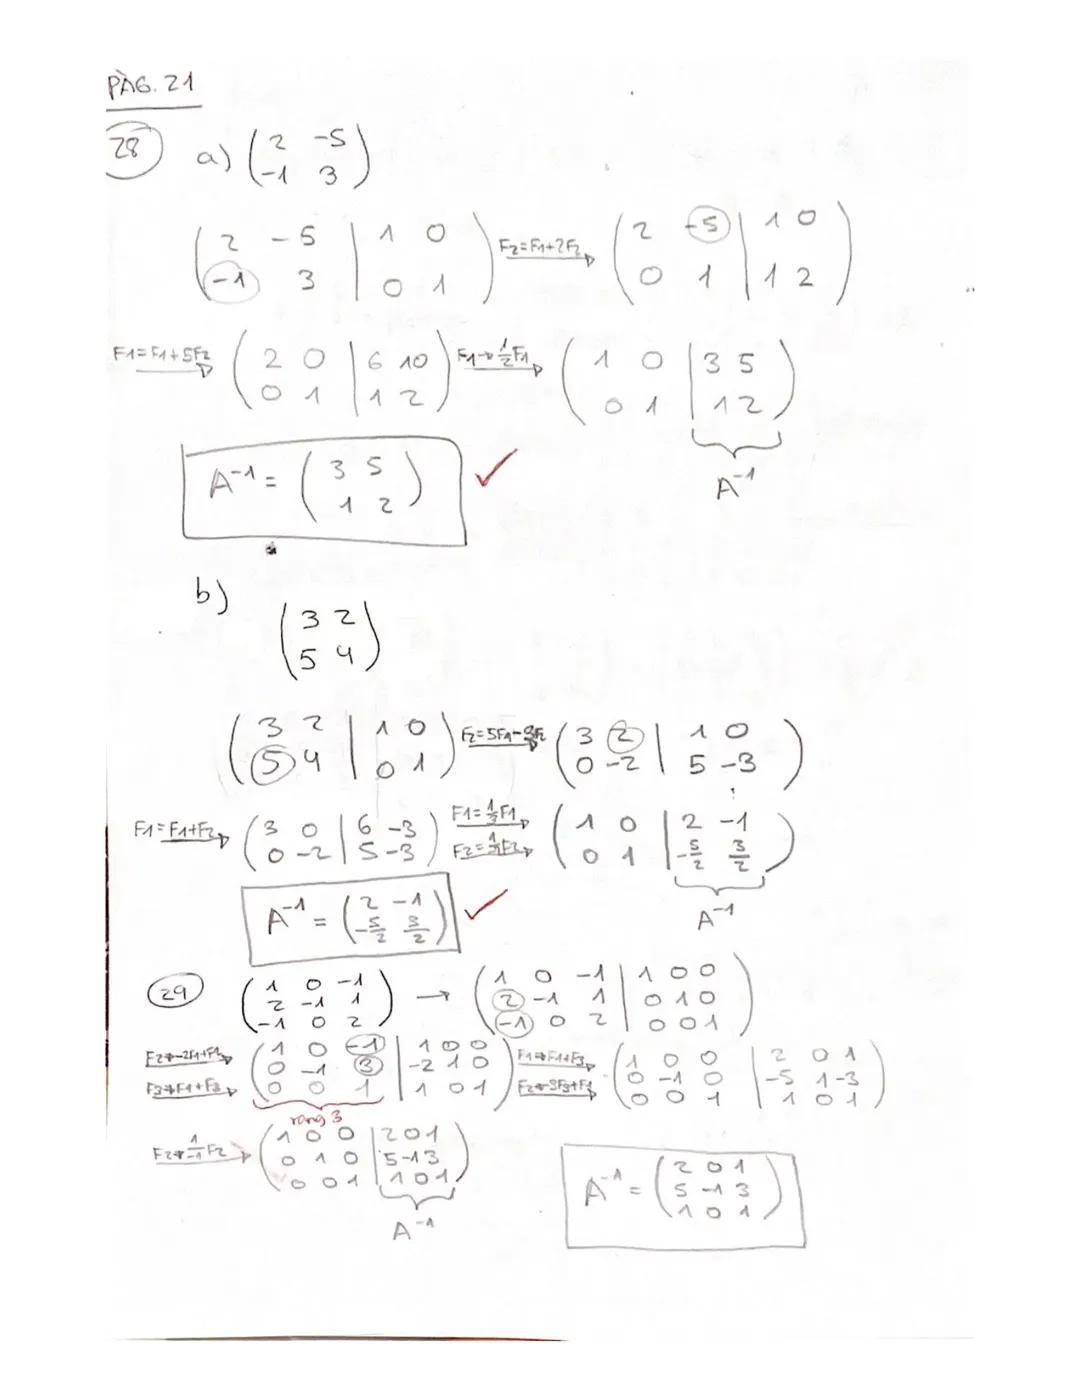 PÀG. 21
28 a) ( 2 -5
-1 3 )
( 2 -5 | 1 0
-1 3 | 0 1 ) F2=F1+2F2 → ( 2 -5 | 1 0
0 1 | 1 2 )
F1=F1+5F2 → ( 2 0 | 6 10
0 1 | 1 2 ) F1→1/2F1 → ( 1 0 | 3 5
0 1 | 1 2 )
A^-1
A^-1 = ( 3 5
1 2 ) ✓
b)
( 3 2
5 4 )
( 3 2 | 1 0
5 4 | 0 1 ) F2=5F1-3F2 → ( 3 2 | 1 0
0 -2 | 5 -3 )
F1=F1+F2 → ( 3 0 | 6 -3
0 -2 | 5 -3 ) F1=1/3F1 → ( 1 0 | 2 -1
0 1 | -5/2 3/2 )
A^-1
A^-1 = ( 2 -1
-5/2 3/2 ) ✓
29 ( 1 0 -1
2 -1 1
-1 0 2 ) → ( 1 0 -1 | 1 0 0
2 -1 1 | 0 1 0
-1 0 2 | 0 0 1 )
F2→-2F1+F2
F3→F1+F3 → ( 1 0 -1 | 1 0 0
0 -1 3 | -2 1 0
0 0 1 | 1 0 1 )
rang 3
F1→F1+F3 → ( 1 0 0 | 2 0 1
0 -1 0 | -5 1 -3
0 0 1 | 1 0 1 )
F2→1/-1F2 → ( 1 0 0 | 2 0 1
0 1 0 | 5 -1 3
0 0 1 | 1 0 1 )
A^-1
A^-1 = ( 2 0 1
5 -1 3
1 0 1 )